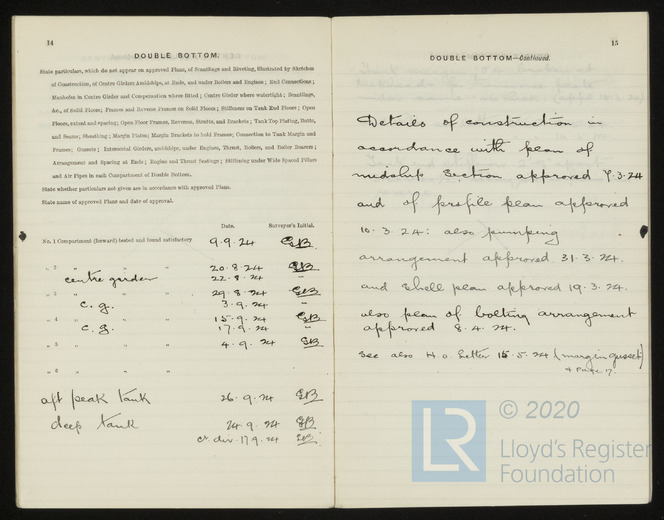 14
DOUBLE BOTTOM.
State particulars, which do not appear on approved Plans, of Scantlings and Riveting, illustrated by Sketches
of Construction, of Centre Girders Amidships, at Ends, and under Boilers and Engines; End Connections;
Manholes in Centre Girder and Compensation where fitted; Centre Girder where watertight; Scantlings,
&c., of Solid Floors; Frames and Reverse Frames on Solid Floors; Stiffeners on Tank End Floors; Open
Floors, extent and spacing; Open Floor Frames, Reverses, Struts, and Brackets; Tank Top Plating, Butts,
and Seams; Sheathing; Margin Plates; Margin Brackets to hold Frames; Connection to Tank Margin and
Frames; Gussets; Intercostal Girders, amidships, under Engines, Thrust, Boilers, and Boiler Bearers;
Arrangement and Spacing at Ends; Engine and Thrust Seatings; Stiffening under Wide Spaced Pillars
and Air Pipes in each Compartment of Double Bottom.
State whether particulars not given are in accordance with approved Plans.
State name of approved Plans and date of approval.
Date. Surveyor's Initial.
No. 1 Compartment (forward) tested and found satisfactory 9.9.24 GB
" 2 " " " " 20.8.24 GB
centre girder 22.8.24 "
" 3 " " " " 29.8.24 GB
c.g. 3.9.24 "
" 4 " " " " 15.9.24 GB
c.g. 17.9.24 "
" 5 " " " " 4.9.24 GB
" 6 " " " "
aft peak tank 26.9.24 GB
deep tank 24.9.24 GB
17.9.24 GB
15
DOUBLE BOTTOM—Continued.
Details of construction in
accordance with plan of
midship Section approved 7.3.24
and of profile plan approved
10.3.24: also pumping
arrangement approved 31.3.24.
and Shell plan approved 19.3.24.
also plan of bolting arrangement
approved 8.4.24.
See also H.O. Letter 15.5.24 (margin gussets)
& Page 17.
LR
© 2020
Lloyd's Register
Foundation